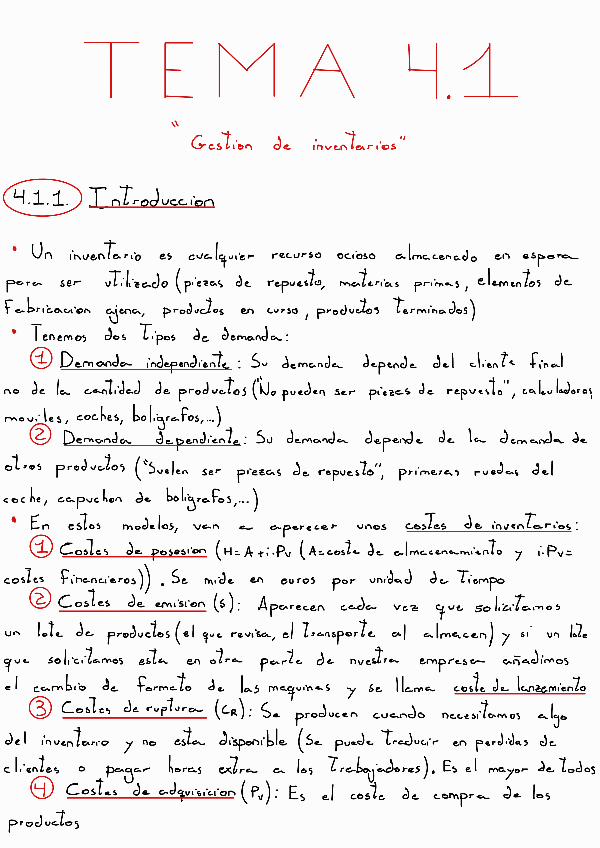 TEMA 4.1
"Gestion de inventarios"
4.1.1. Introduccion
• Un inventario es cualquier recurso ocioso almacenado en espera
para ser utilizado (piezas de repuesto, materias primas, elementos de
fabricacion ajena, productos en curso, productos terminados)
• Tenemos dos tipos de demanda:
1 Demanda independiente: Su demanda depende del cliente final
no de la cantidad de productos ("No pueden ser piezas de repuesto", calculadoras,
moviles, coches, boligrafos,...)
2 Demanda dependiente: Su demanda depende de la demanda de
otros productos ("Suelen ser piezas de repuesto", primeras ruedas del
coche, capuchon de boligrafos,...)
• En estos modelos, van a aparecer unos costes de inventarios:
1 Costes de posesion (H=A+i·Pv (A=coste de almacenamiento y i·Pv=
costes financieros)). Se mide en euros por unidad de tiempo
2 Costes de emision (S): Aparecen cada vez que solicitamos
un lote de productos (el que revisa, el transporte al almacen) y si un lote
que solicitamos esta en otra parte de nuestra empresa añadimos
el cambio de formato de las maquinas y se llama coste de lanzamiento
3 Costes de ruptura (CR): Se producen cuando necesitamos algo
del inventario y no esta disponible (Se puede traducir en perdidas de
clientes o pagar horas extra a los trabajadores). Es el mayor de todos
4 Costes de adquisicion (Pv): Es el coste de compra de los
productos